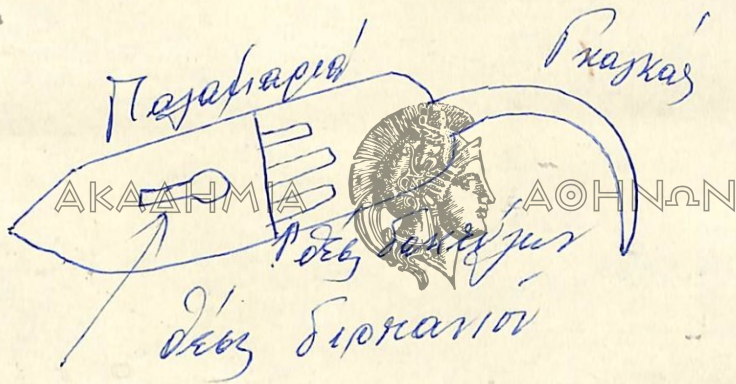 Παλαμαριά
Γκαγκάς
ΑΚΑΔΗΜΙΑ ΑΘΗΝΩΝ
θέσις δακτύλων
θέσις δερπανιού